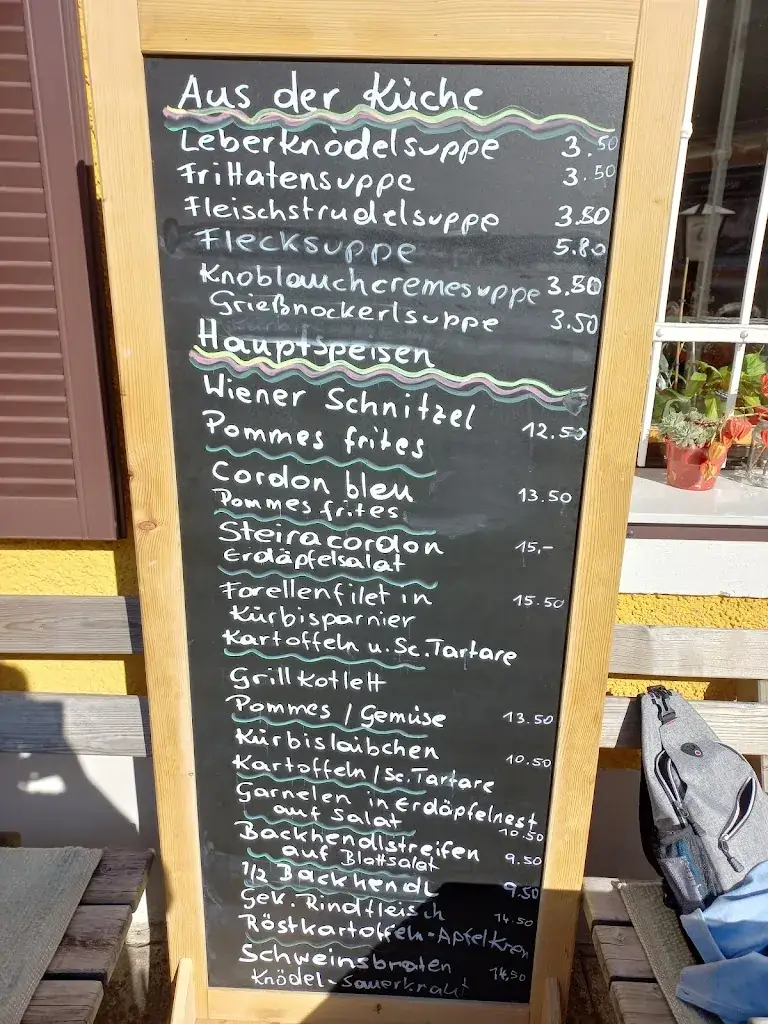 Aus der Küche
Leberknödelsuppe 3.50
Frittatensuppe 3.50
Fleischstrudelsuppe 3.80
Flecksuppe 5.80
Knoblauchcremesuppe 3.80
Grießnockerlsuppe 3.50
Hauptspeisen
Wiener Schnitzel 12.50
Pommes frites
Cordon bleu 13.50
Pommes frites
Steiracordon 15,-
Erdäpfelsalat
Forellenfilet in 15.50
Kürbisparnier
Kartoffeln u. Sc. Tartare
Grillkotlett
Pommes / Gemüse 13.50
Kürbislaibchen 10.50
Kartoffeln / Sc. Tartare
Garnelen in Erdäpfelnest
auf Salat 10.50
Backhendlstreifen 9.50
auf Blattsalat
1/2 Backhendl 9.50
Gek. Rindfleisch 14.50
Röstkartoffeln - Apfelkren
Schweinsbraten 14,50
Knödel - Sauerkraut